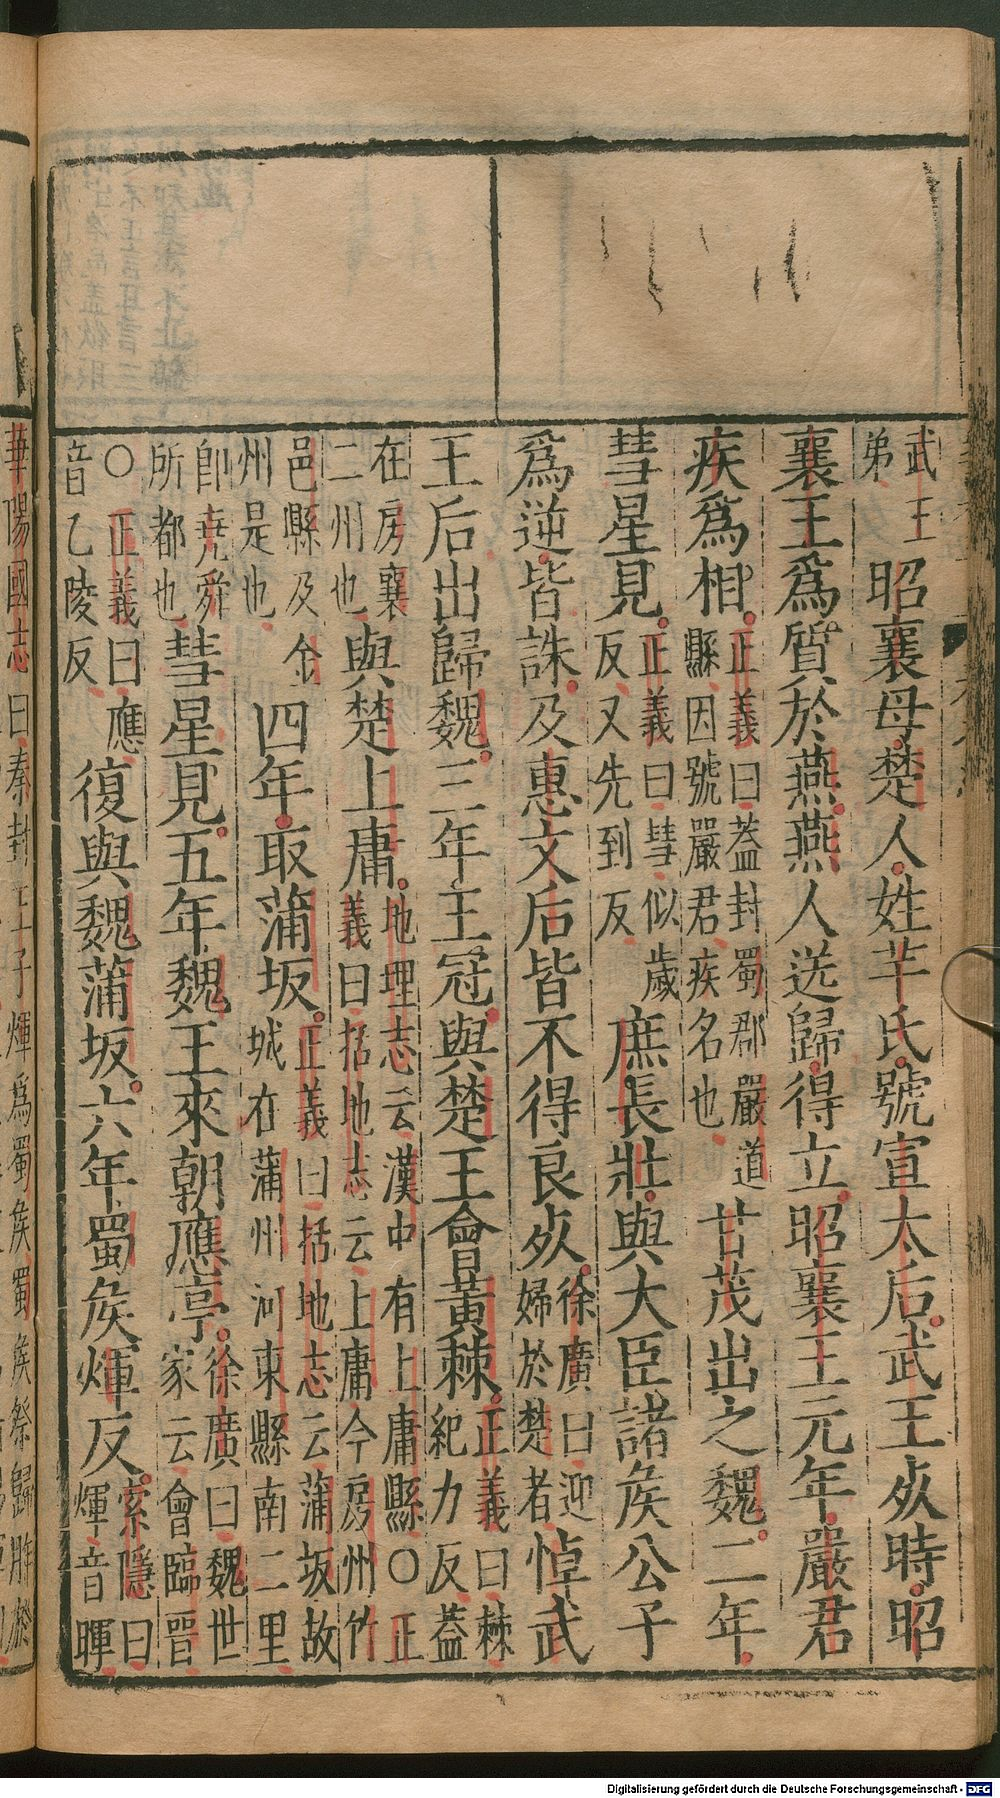 武王弟昭襄母楚人姓芊氏號宣太后武王𣦸時昭
襄王爲質於燕燕人送歸得立昭襄王元年嚴君
疾爲相正義曰蓋封蜀郡嚴道縣因號嚴君疾名也甘茂出之魏二年
彗星見正義曰彗似歲反又先到反庶長壯與大臣諸矦公子
爲逆皆誅及惠文后皆不得良𣦸徐廣曰迎婦於楚者悼武
王后出歸魏三年王冠與楚王會黃棘正義曰棘紀力反蓋
在房襄二州也與楚上庸地理志云漢中有上庸縣○正義曰括地志云上庸今房州竹
邑縣及金州是也四年取蒲坂正義曰括地志云蒲坂故城在蒲州河東縣南二里
卽堯舜所都也彗星見五年魏王來朝應亭徐廣曰魏世家云會臨晉
○正義曰應音乙陵反復與魏蒲坂六年蜀矦煇反索隱曰煇音暉
華陽國志曰秦封王子煇爲蜀矦蜀矦祭歸胙
Digitalisierung gefördert durch die Deutsche Forschungsgemeinschaft - DFG